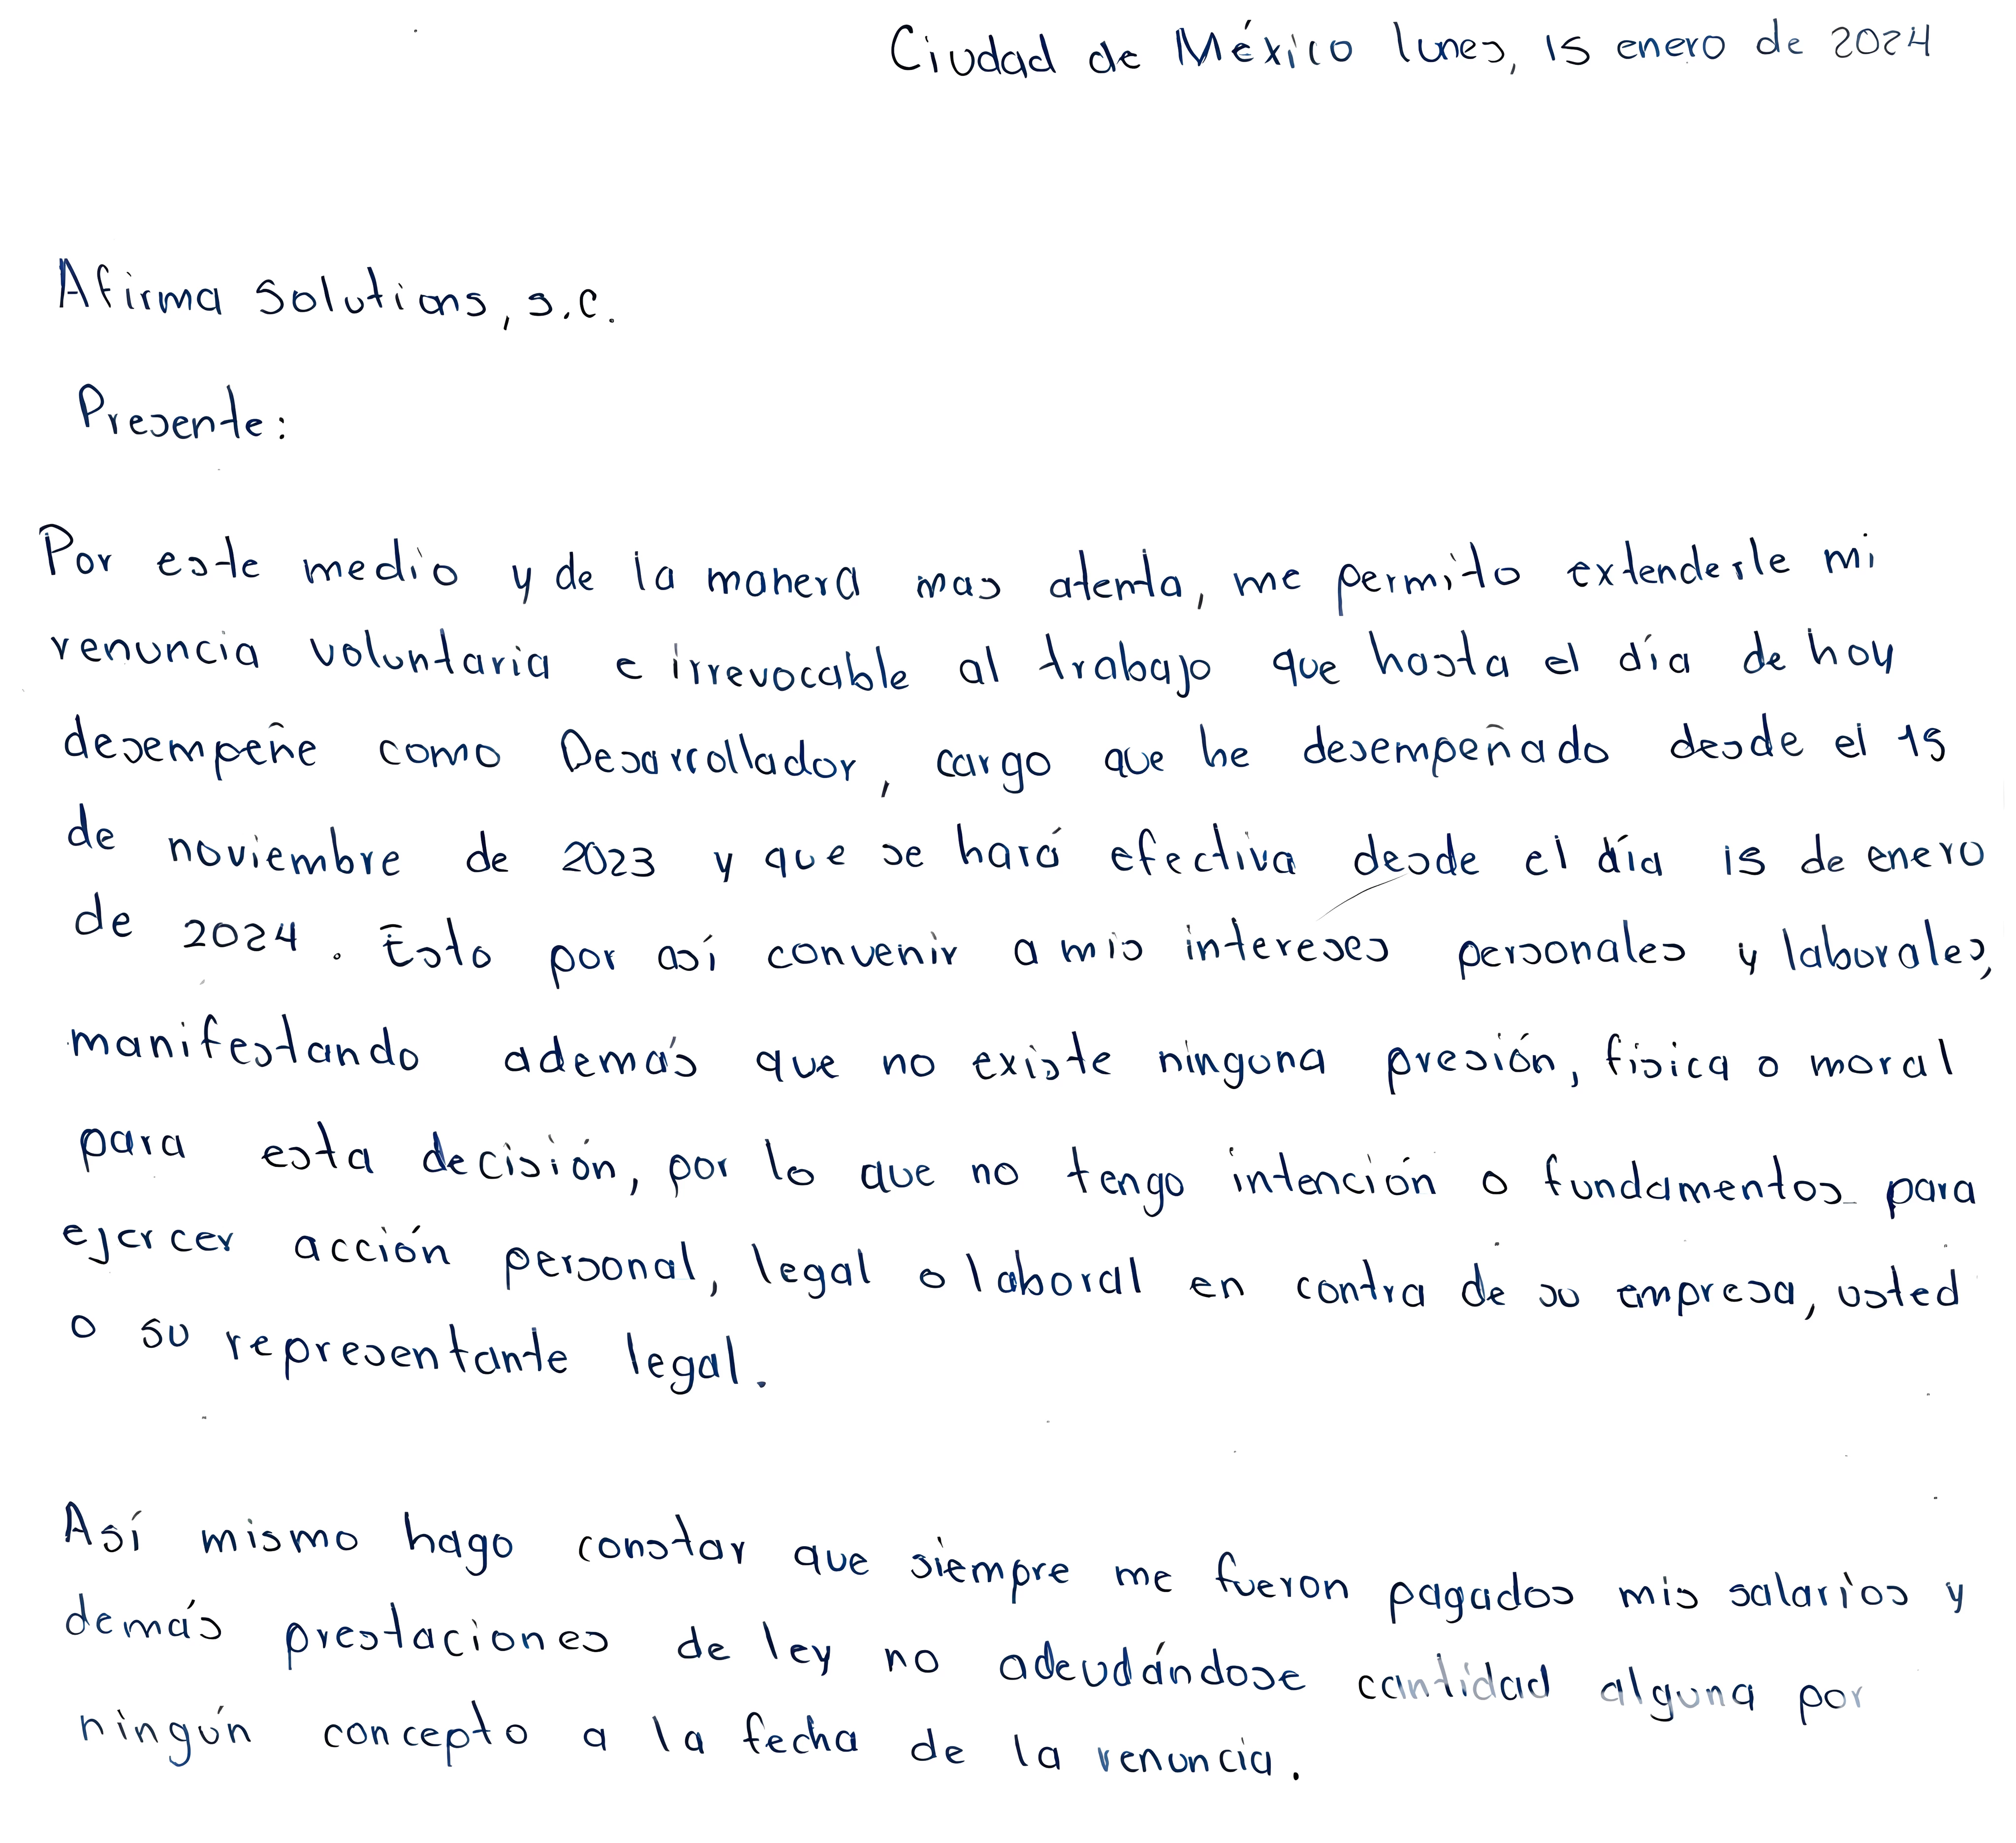 Ciudad de México lunes, 15 enero de 2024
Afirma Solutions, s.c.
Presente:
Por este medio y de la manera mas atenta, me permito extenderle mi
renuncia voluntaria e irrevocable al trabajo que hasta el día de hoy
desempeñe como Desarrollador, cargo que he desempeñado desde el 15
de noviembre de 2023 y que se hará efectiva desde el día 15 de enero
de 2024. Esto por así convenir a mis intereses personales y laborales,
manifestando además que no existe ninguna presión, física o moral
para esta decisión, por lo que no tengo intención o fundamentos para
ejercer acción personal, legal o laboral en contra de su empresa, usted
o su representante legal.
Así mismo hago constar que siempre me fueron pagados mis salarios y
demás prestaciones de ley no adeudándose cantidad alguna por
ningún concepto a la fecha de la renuncia.